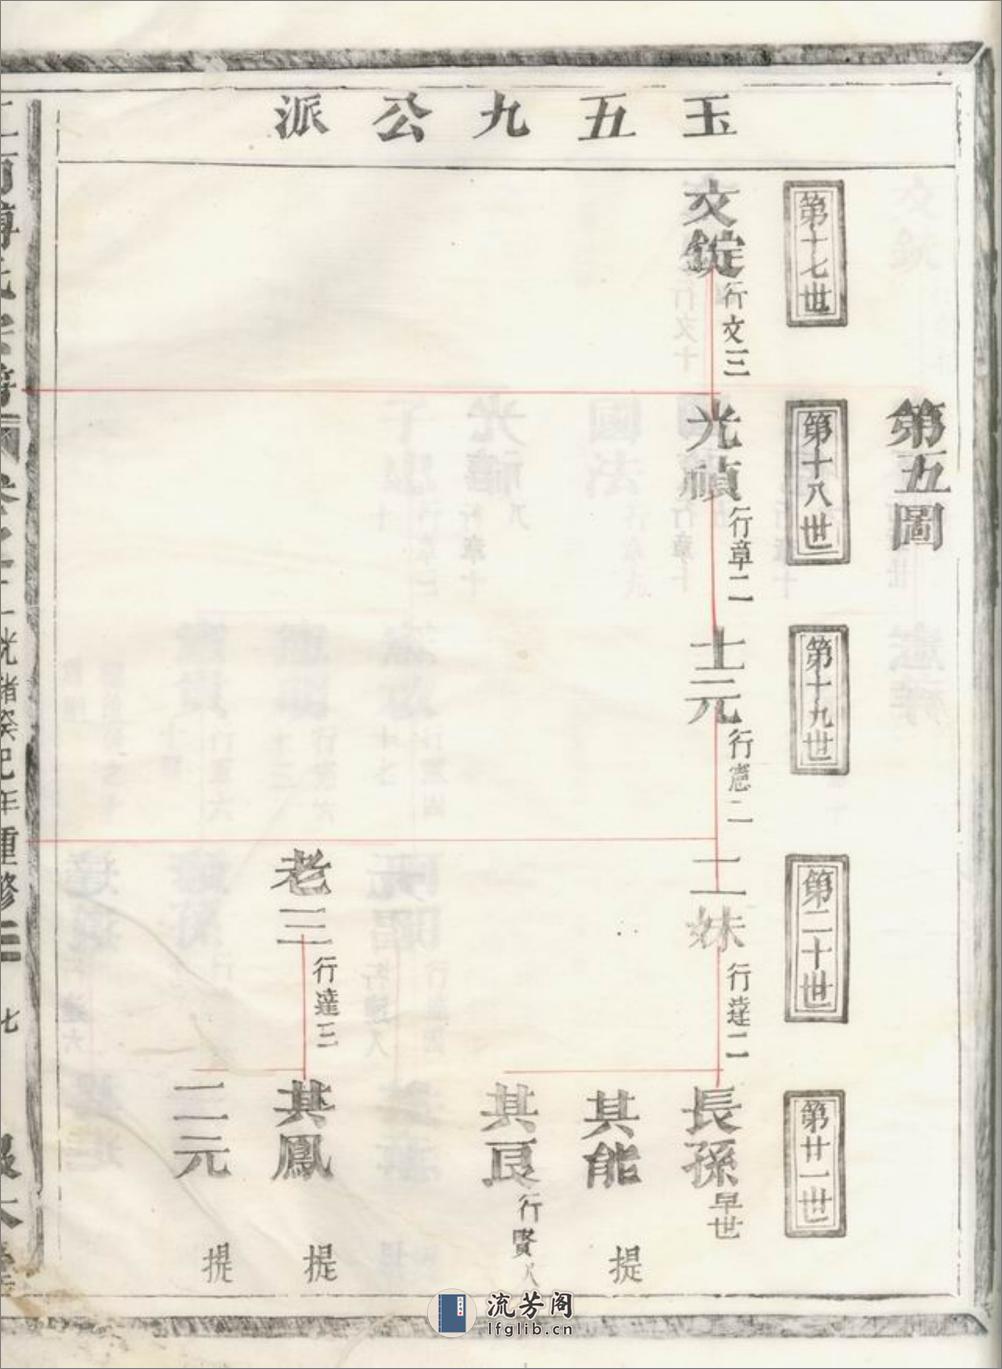 玉五九公派
第五圖
第十七世
第十八世
第十九世
第二十世
第廿一世
文錠
行文三
光禎
行章二
士元
行憲二
二妹
行達二
長孫
早世
其能
提
其良
行賢八
老三
行達三
其鳳
提
二元
提
光緒癸巳年重修
七
流芳阁
lfglib.cn